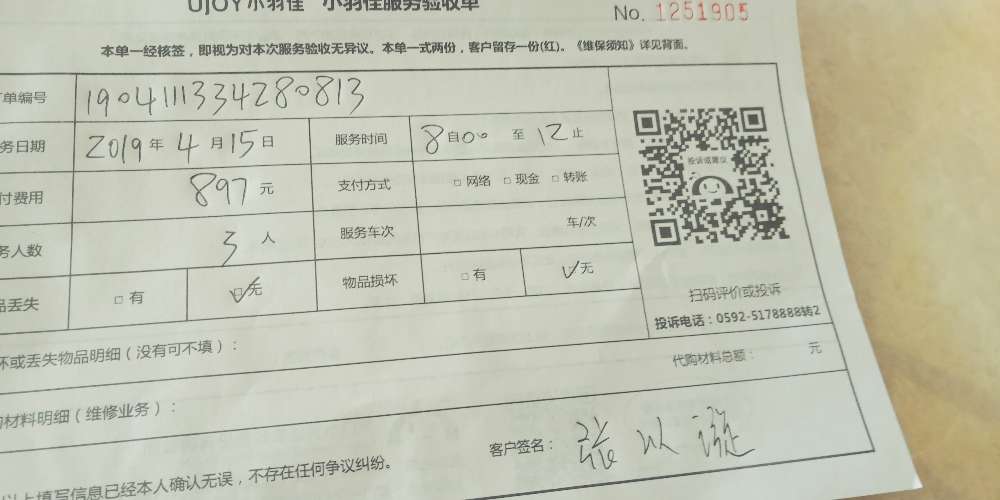 UjOY小羽佳 小羽佳服务验收单
No. 1251905
本单一经核签，即视为对本次服务验收无异议。本单一式两份，客户留存一份(红)。《维保须知》详见背面。
单编号 1904111334280813
务日期 2019年4月15日 服务时间 8自00 至 12止
付费用 897元 支付方式 □网络 □现金 □转账
务人数 3人 服务车次 车/次
品丢失 □有 ☑无 物品损坏 □有 ☑无
投诉或建议
扫码评价或投诉
投诉电话：0592-5178888转2
坏或丢失物品明细（没有可不填）：
代购材料总额： 元
购材料明细（维修业务）：
客户签名：张以
以上填写信息已经本人确认无误，不存在任何争议纠纷。